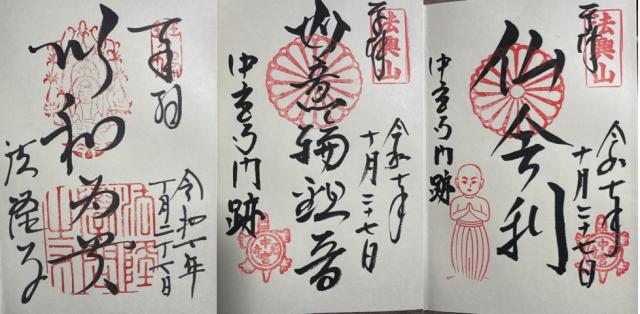 奉拝
以和為貴
令和七年
十月二十七日
法隆寺
奉拝
法興山
令和七年
十月二十七日
如意輪観音
中宮寺門跡
奉拝
法興山
令和七年
十月二十七日
仏舎利
中宮寺門跡